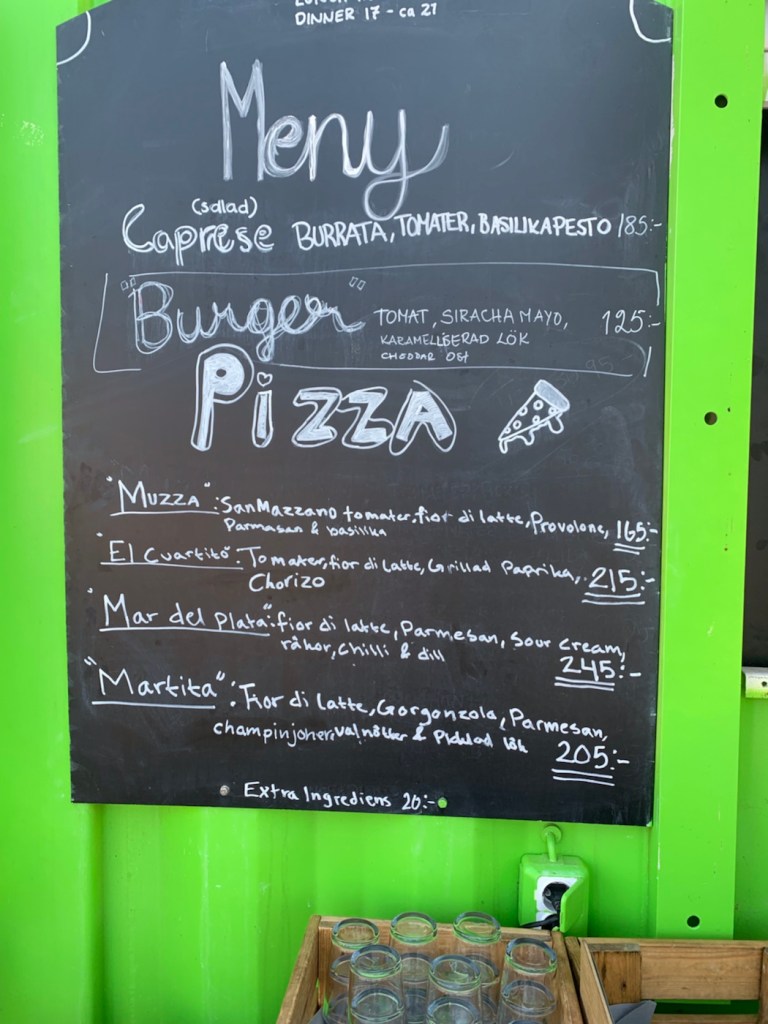 DINNER 17 - ca 21
Meny
(salad)
Caprese BURRATA, TOMATER, BASILIKAPESTO 185:-
"Burger" TOMAT, SIRACHA MAYO, 125:-
KARAMELLISERAD LÖK
CHEDDAR OST
PIZZA
"MUZZA": SanMazzano tomater, fior di latte, Provolone, 165:-
Parmasan & basilika
"El Cuartito": Tomater, fior di latte, Grillad Paprika, 215:-
Chorizo
"Mar del Plata": fior di latte, Parmesan, Sour cream,
råkor, chilli & dill 245:-
"Martita": Fior di latte, Gorgonzola, Parmesan,
champinjoner, valnötter & Picklad lök 205:-
Extra Ingrediens 20:-